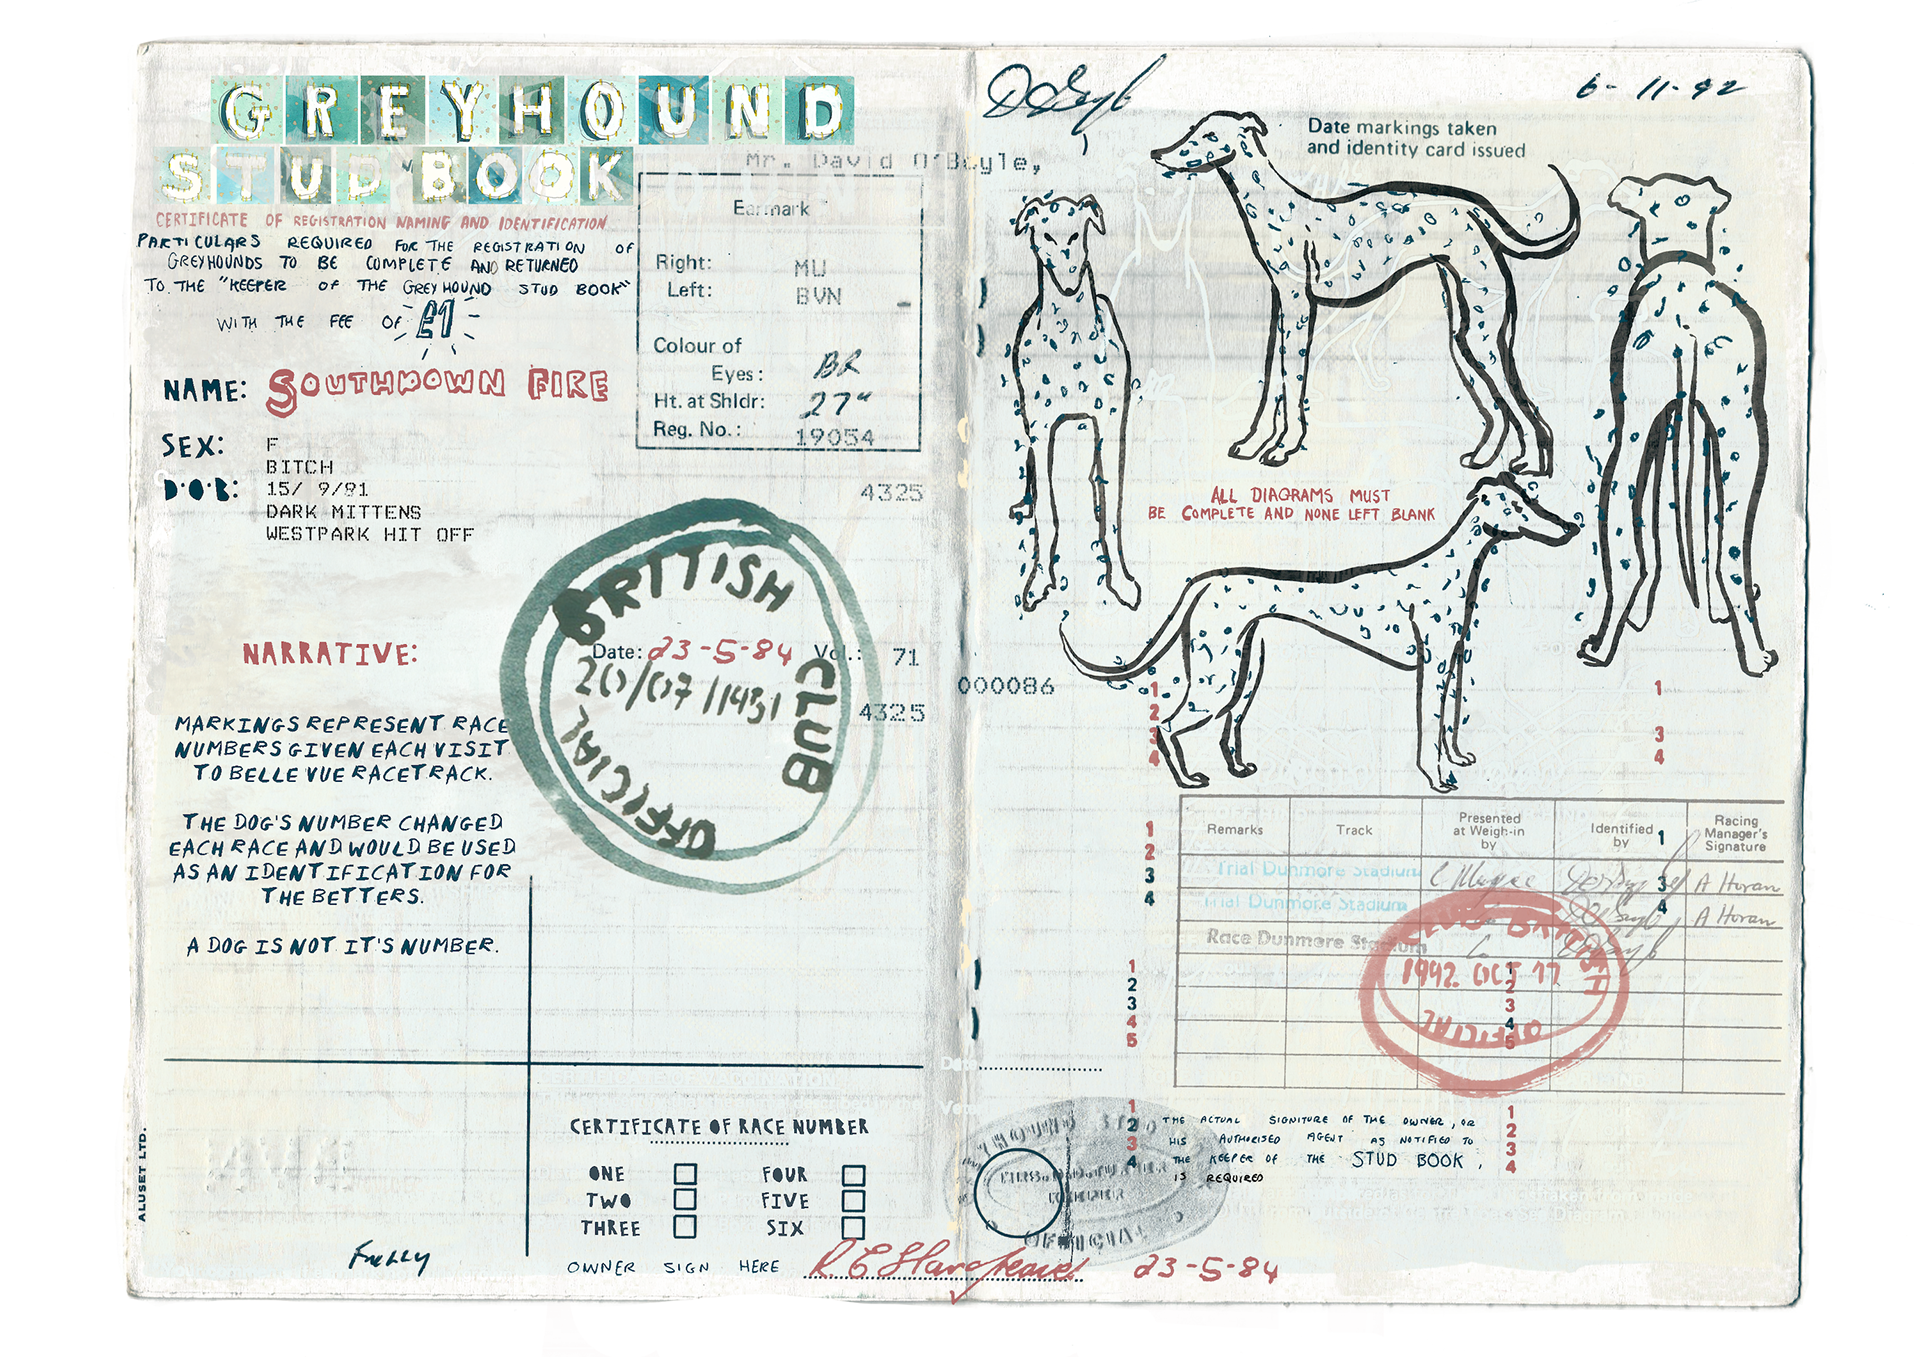 GREYHOUND
STUD BOOK
CERTIFICATE OF REGISTRATION NAMING AND IDENTIFICATION
PARTICULARS REQUIRED FOR THE REGISTRATION OF
GREYHOUNDS TO BE COMPLETE AND RETURNED
TO THE "KEEPER OF THE GREYHOUND STUD BOOK"
WITH THE FEE OF £1
NAME: SOUTHDOWN FIRE
SEX: F
BITCH
D.O.B: 15/ 9/81
DARK MITTENS
WESTPARK HIT OFF
Mr. David O'Boyle,
Earmark
Right: MU
Left: BVN
Colour of
Eyes: BR
Ht. at Shldr: 27"
Reg. No.: 19054
4325
BRITISH
CLUB
OFFICIAL
Date: 23-5-84 Vol.: 71
20/07/1431
4325
000086
NARRATIVE:
MARKINGS REPRESENT RACE
NUMBERS GIVEN EACH VISIT
TO BELLE VUE RACETRACK.
THE DOG'S NUMBER CHANGED
EACH RACE AND WOULD BE USED
AS AN IDENTIFICATION FOR
THE BETTERS.
A DOG IS NOT IT'S NUMBER.
ALUSET LTD.
CERTIFICATE OF RACE NUMBER
ONE FOUR
TWO FIVE
THREE SIX
OWNER SIGN HERE
23-5-84
6-11-92
Date markings taken
and identity card issued
ALL DIAGRAMS MUST
BE COMPLETE AND NONE LEFT BLANK
1
2
3
4
1
3
4
Remarks Track Presented at Weigh-in Identified by Racing Manager's Signature
1
2
3
4
1
3
4
Trial Dunmore Stadium A Horan
Trial Dunmore Stadium A Horan
Race Dunmore Stadium
CLUB BRITISH
1992 OCT 17
OFFICIAL
1
2
3
4
5
1
2
3
4
5
1
2
3
4
THE ACTUAL SIGNITURE OF THE OWNER, OR
HIS AUTHORISED AGENT AS NOTIFIED TO
THE KEEPER OF THE STUD BOOK,
IS REQUIRED
1
2
3
4
KEEPER
OFFICIAL